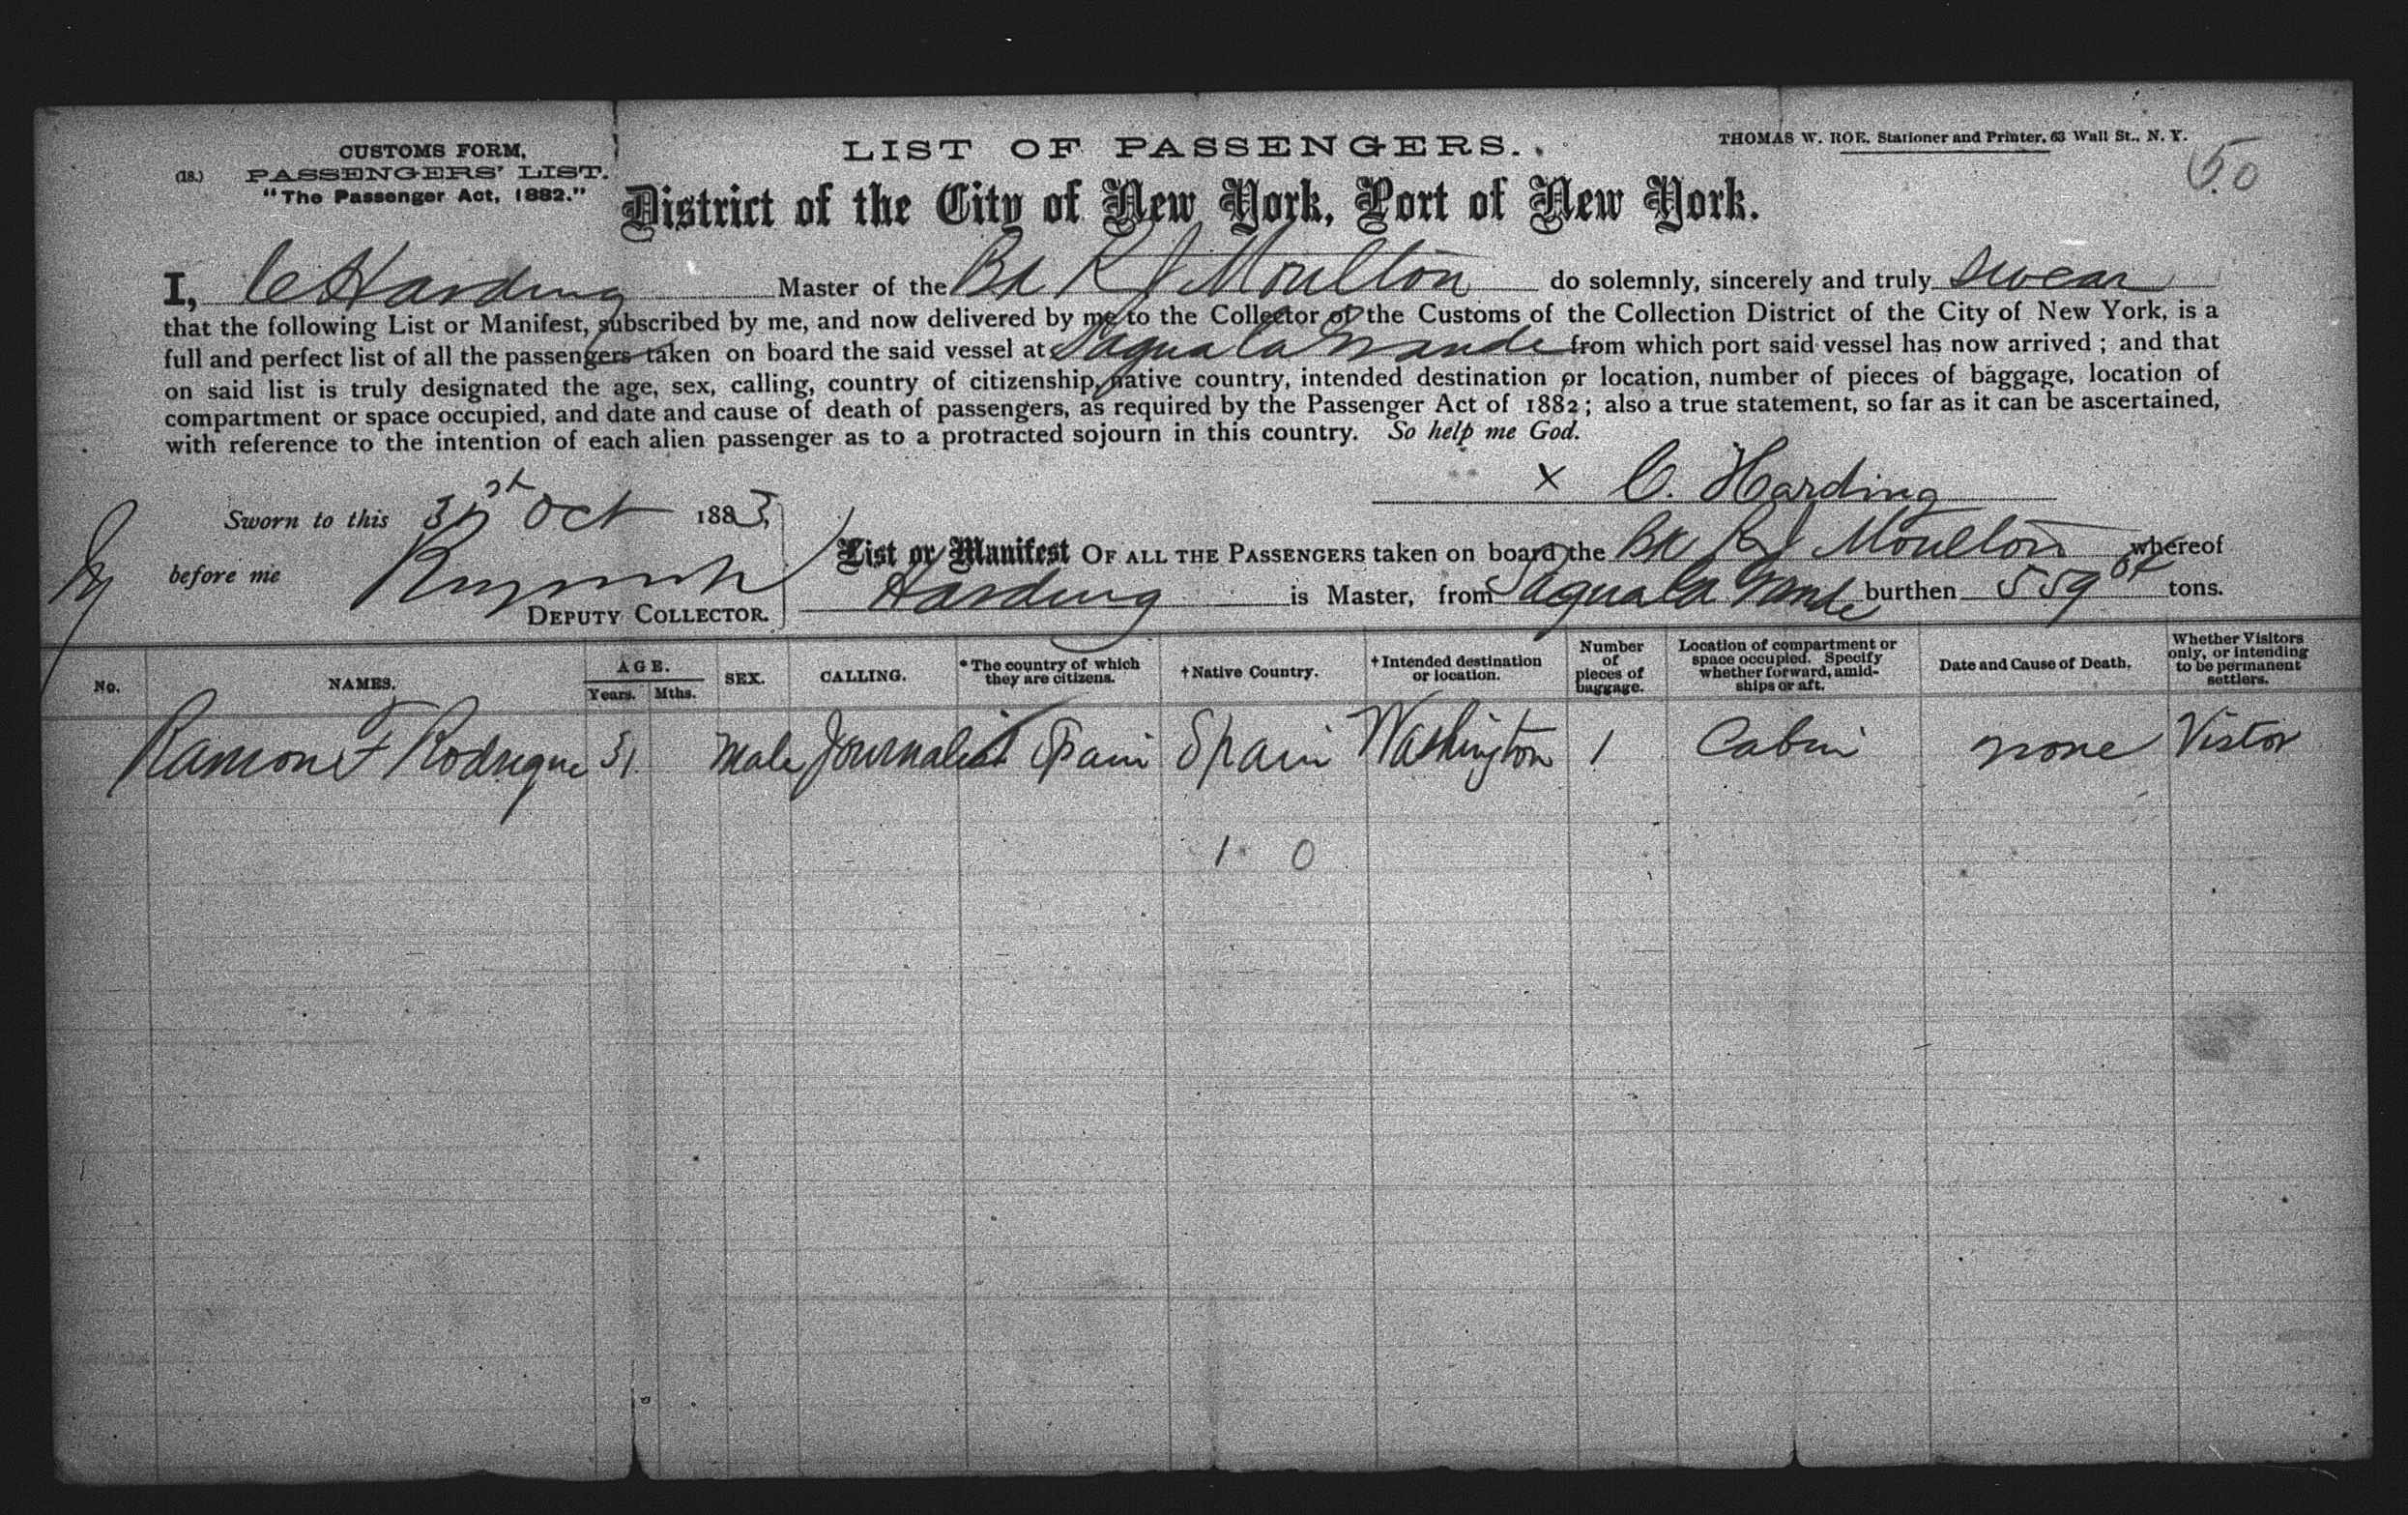 CUSTOMS FORM,
(18.) PASSENGERS' LIST.
"The Passenger Act, 1882."
LIST OF PASSENGERS.
THOMAS W. ROE, Stationer and Printer, 63 Wall St., N. Y.
50
District of the City of New York, Port of New York.
I, C Harding Master of the Bk R J Moulton do solemnly, sincerely and truly swear
that the following List or Manifest, subscribed by me, and now delivered by me to the Collector of the Customs of the Collection District of the City of New York, is a
full and perfect list of all the passengers taken on board the said vessel at Sagua la Grande from which port said vessel has now arrived; and that
on said list is truly designated the age, sex, calling, country of citizenship, native country, intended destination or location, number of pieces of baggage, location of
compartment or space occupied, and date and cause of death of passengers, as required by the Passenger Act of 1882; also a true statement, so far as it can be ascertained,
with reference to the intention of each alien passenger as to a protracted sojourn in this country. So help me God.
x C. Harding
Sworn to this 31st Oct 1883,
before me
DEPUTY COLLECTOR.
List or Manifest OF ALL THE PASSENGERS taken on board the Bk R J Moulton whereof
Harding is Master, from Sagua la Grande burthen 559 tons.
No. NAMES. AGE. Years. Mths. SEX. CALLING. *The country of which they are citizens. †Native Country. †Intended destination or location. Number of pieces of baggage. Location of compartment or space occupied. Specify whether forward, amidships or aft. Date and Cause of Death. Whether Visitors only, or intending to be permanent settlers.
Ramon F Rodrigue 31 Male Journalist Spain Spain Washington 1 Cabin none Vistor
1 0